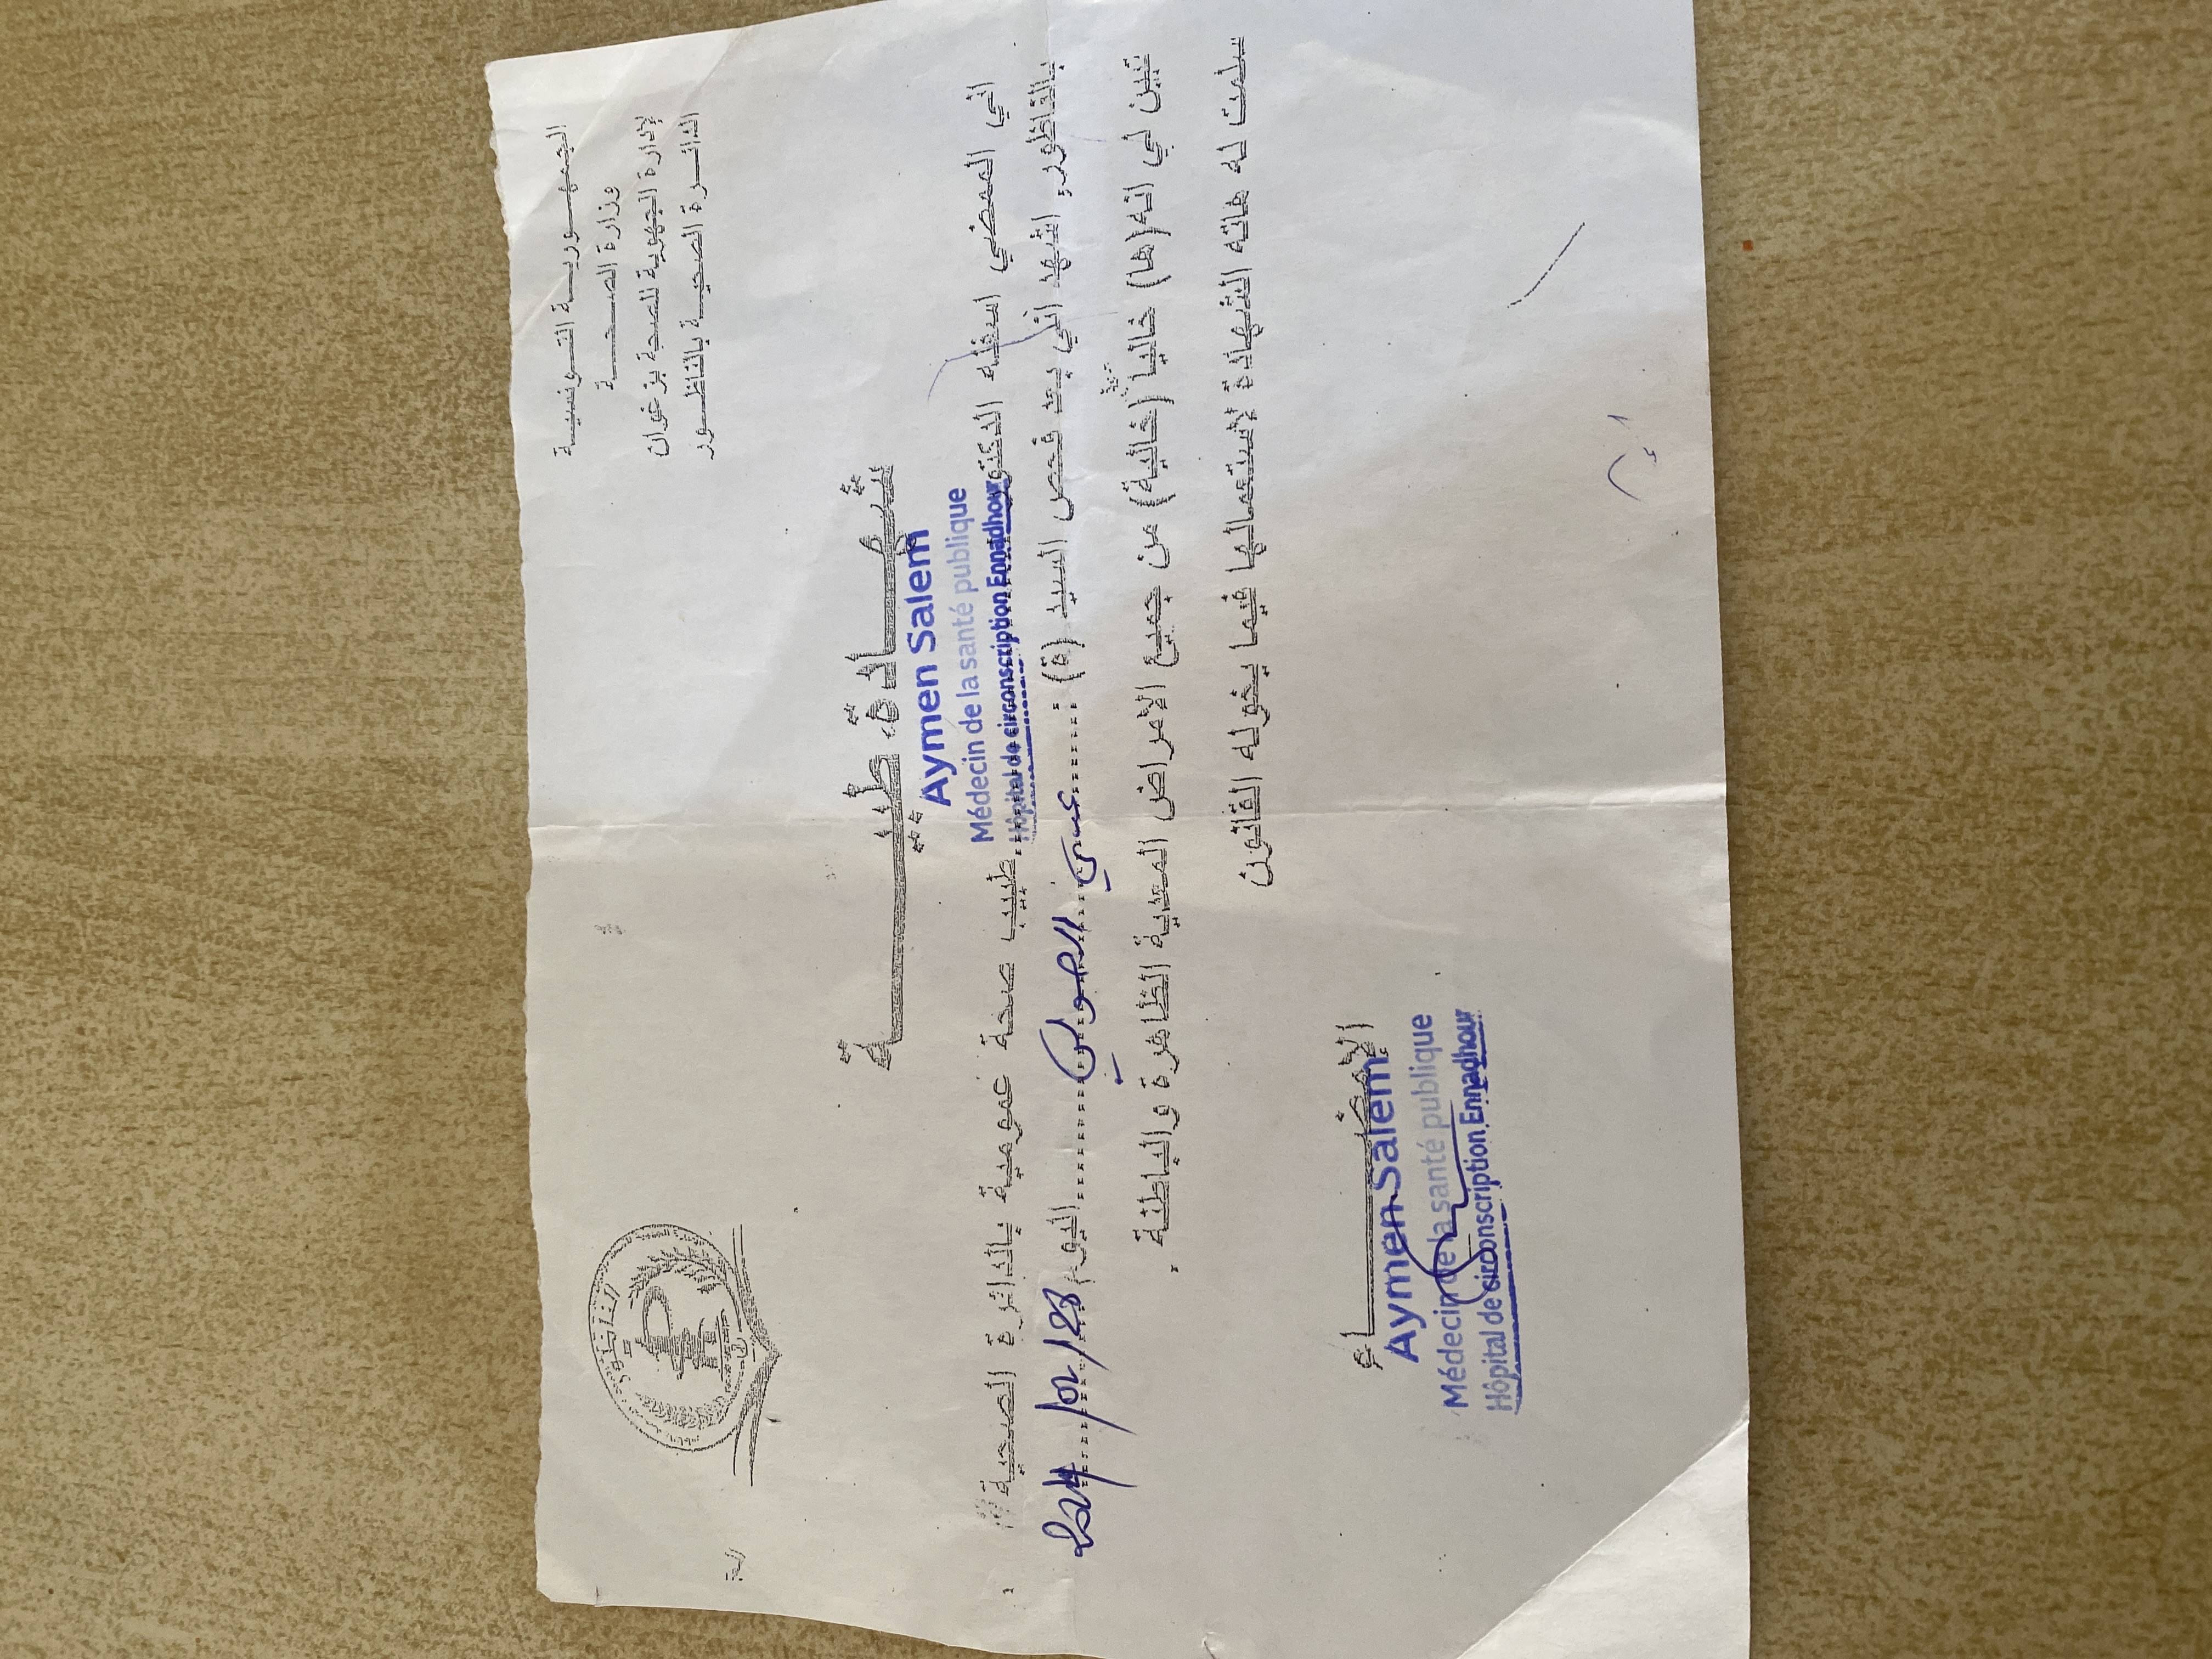 الجمهورية التونسية
وزارة الصحة
الإدارة الجهوية للصحة بزغوان
الدائرة الصحية بالناظور
الناظور
شهادة طبية
Aymen Salem
Médecin de la santé publique
Hôpital de circonscription Ennadhour
اني الممضي اسفله الدكتور طبيب صحة عمومية بالدائرة الصحية
بالناظور، اشهد اني بعد فحص السيد (ة) عيسى الصولي اليوم 28/02/2024
تبين لي انه(ها) خاليا (خالية) من جميع الأمراض المعدية الظاهرة والباطنة .
سلمت له هاته الشهادة لإستعمالها فيما يخوله القانون
الإمضاء
Aymen Salem
Médecin de la santé publique
Hôpital de circonscription Ennadhour